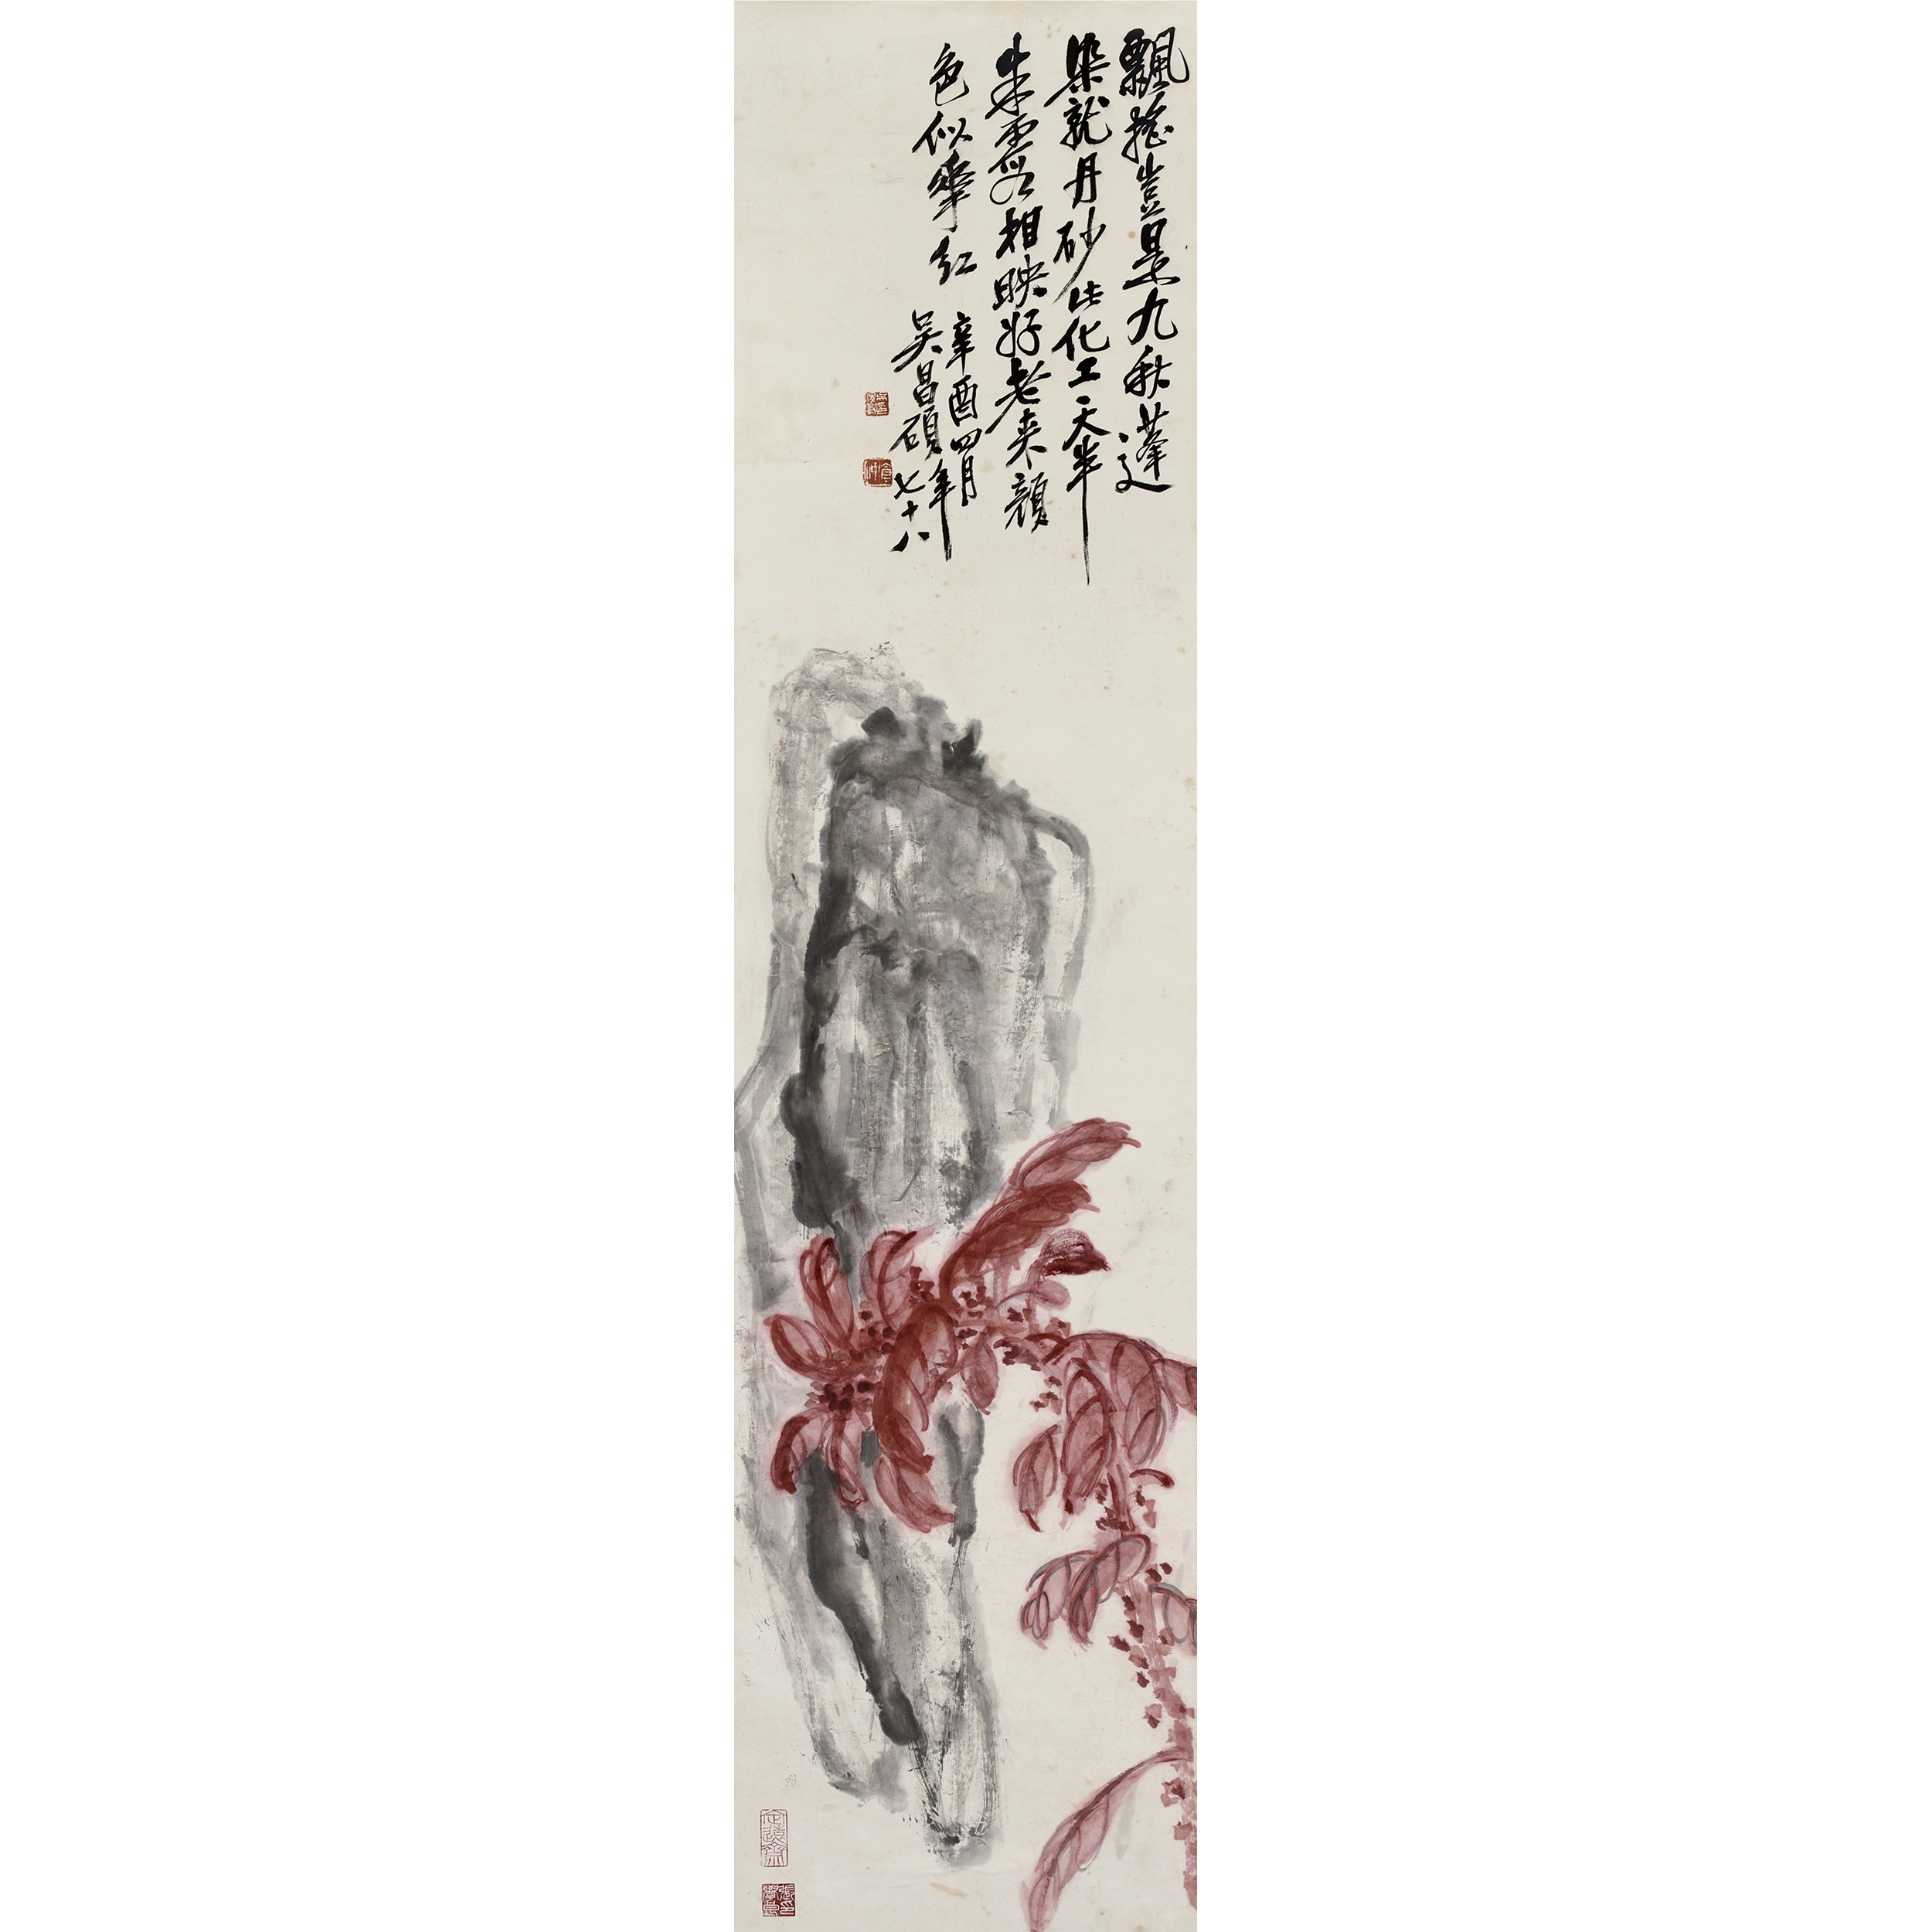 飄搖豈是九秋蓬
染就丹砂化工天半
朱霞相映好老來顏
色似華紅
辛酉四月
吳昌碩年七十八